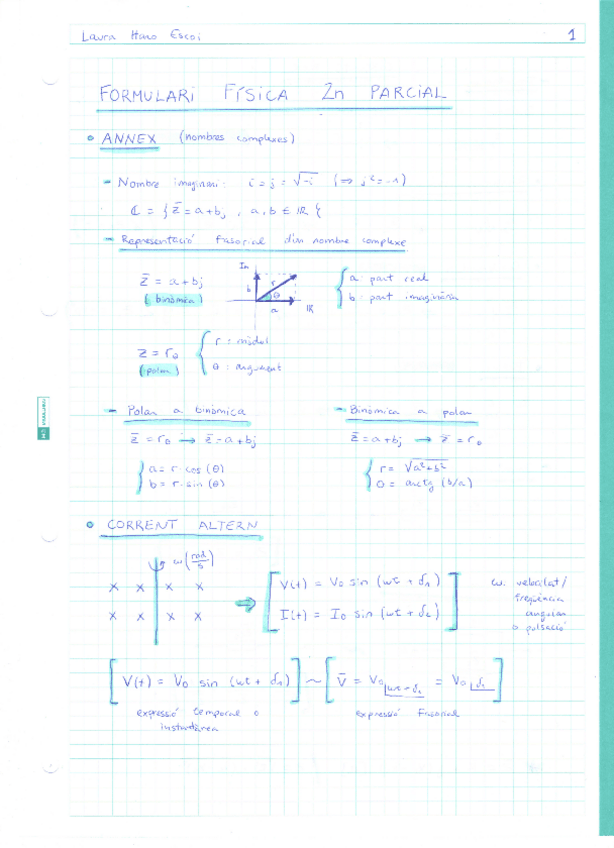 Laura Haro Escoi 1
FORMULARI FÍSICA 2n PARCIAL
ANNEX (nombres complexes)
- Nombre imaginari: i = j = √-i (⇒ j² = -1)
ℂ = { z̄ = a + bj , a, b ∈ ℝ {
- Representació fasorial d'un nombre complexe
z̄ = a + bj
(binòmica)
Im
b
r
θ
a
ℝ
a: part real
b: part imaginària
z = r_θ
(polar)
r = mòdul
θ: argument
- Polar a binòmica
z̄ = r_θ → z̄ = a + bj
a = r · cos (θ)
b = r · sin (θ)
- Binòmica a polar
z̄ = a + bj → z̄ = r_θ
r = √a² + b²
θ = arctg (b/a)
CORRENT ALTERN
ω (rad/s)
x x x x
x x x x
⇒
V(t) = V₀ sin (ωt + δ₁)
I(t) = I₀ sin (ωt + δ₂)
ω: velocitat/
freqüència
angular
o pulsació
[V(t) = V₀ sin (ωt + δ₁)] ~ [V̄ = V₀ ωt + δ₁ = V₀ δ₁]
expressió temporal o
instantànea
expressió fasorial